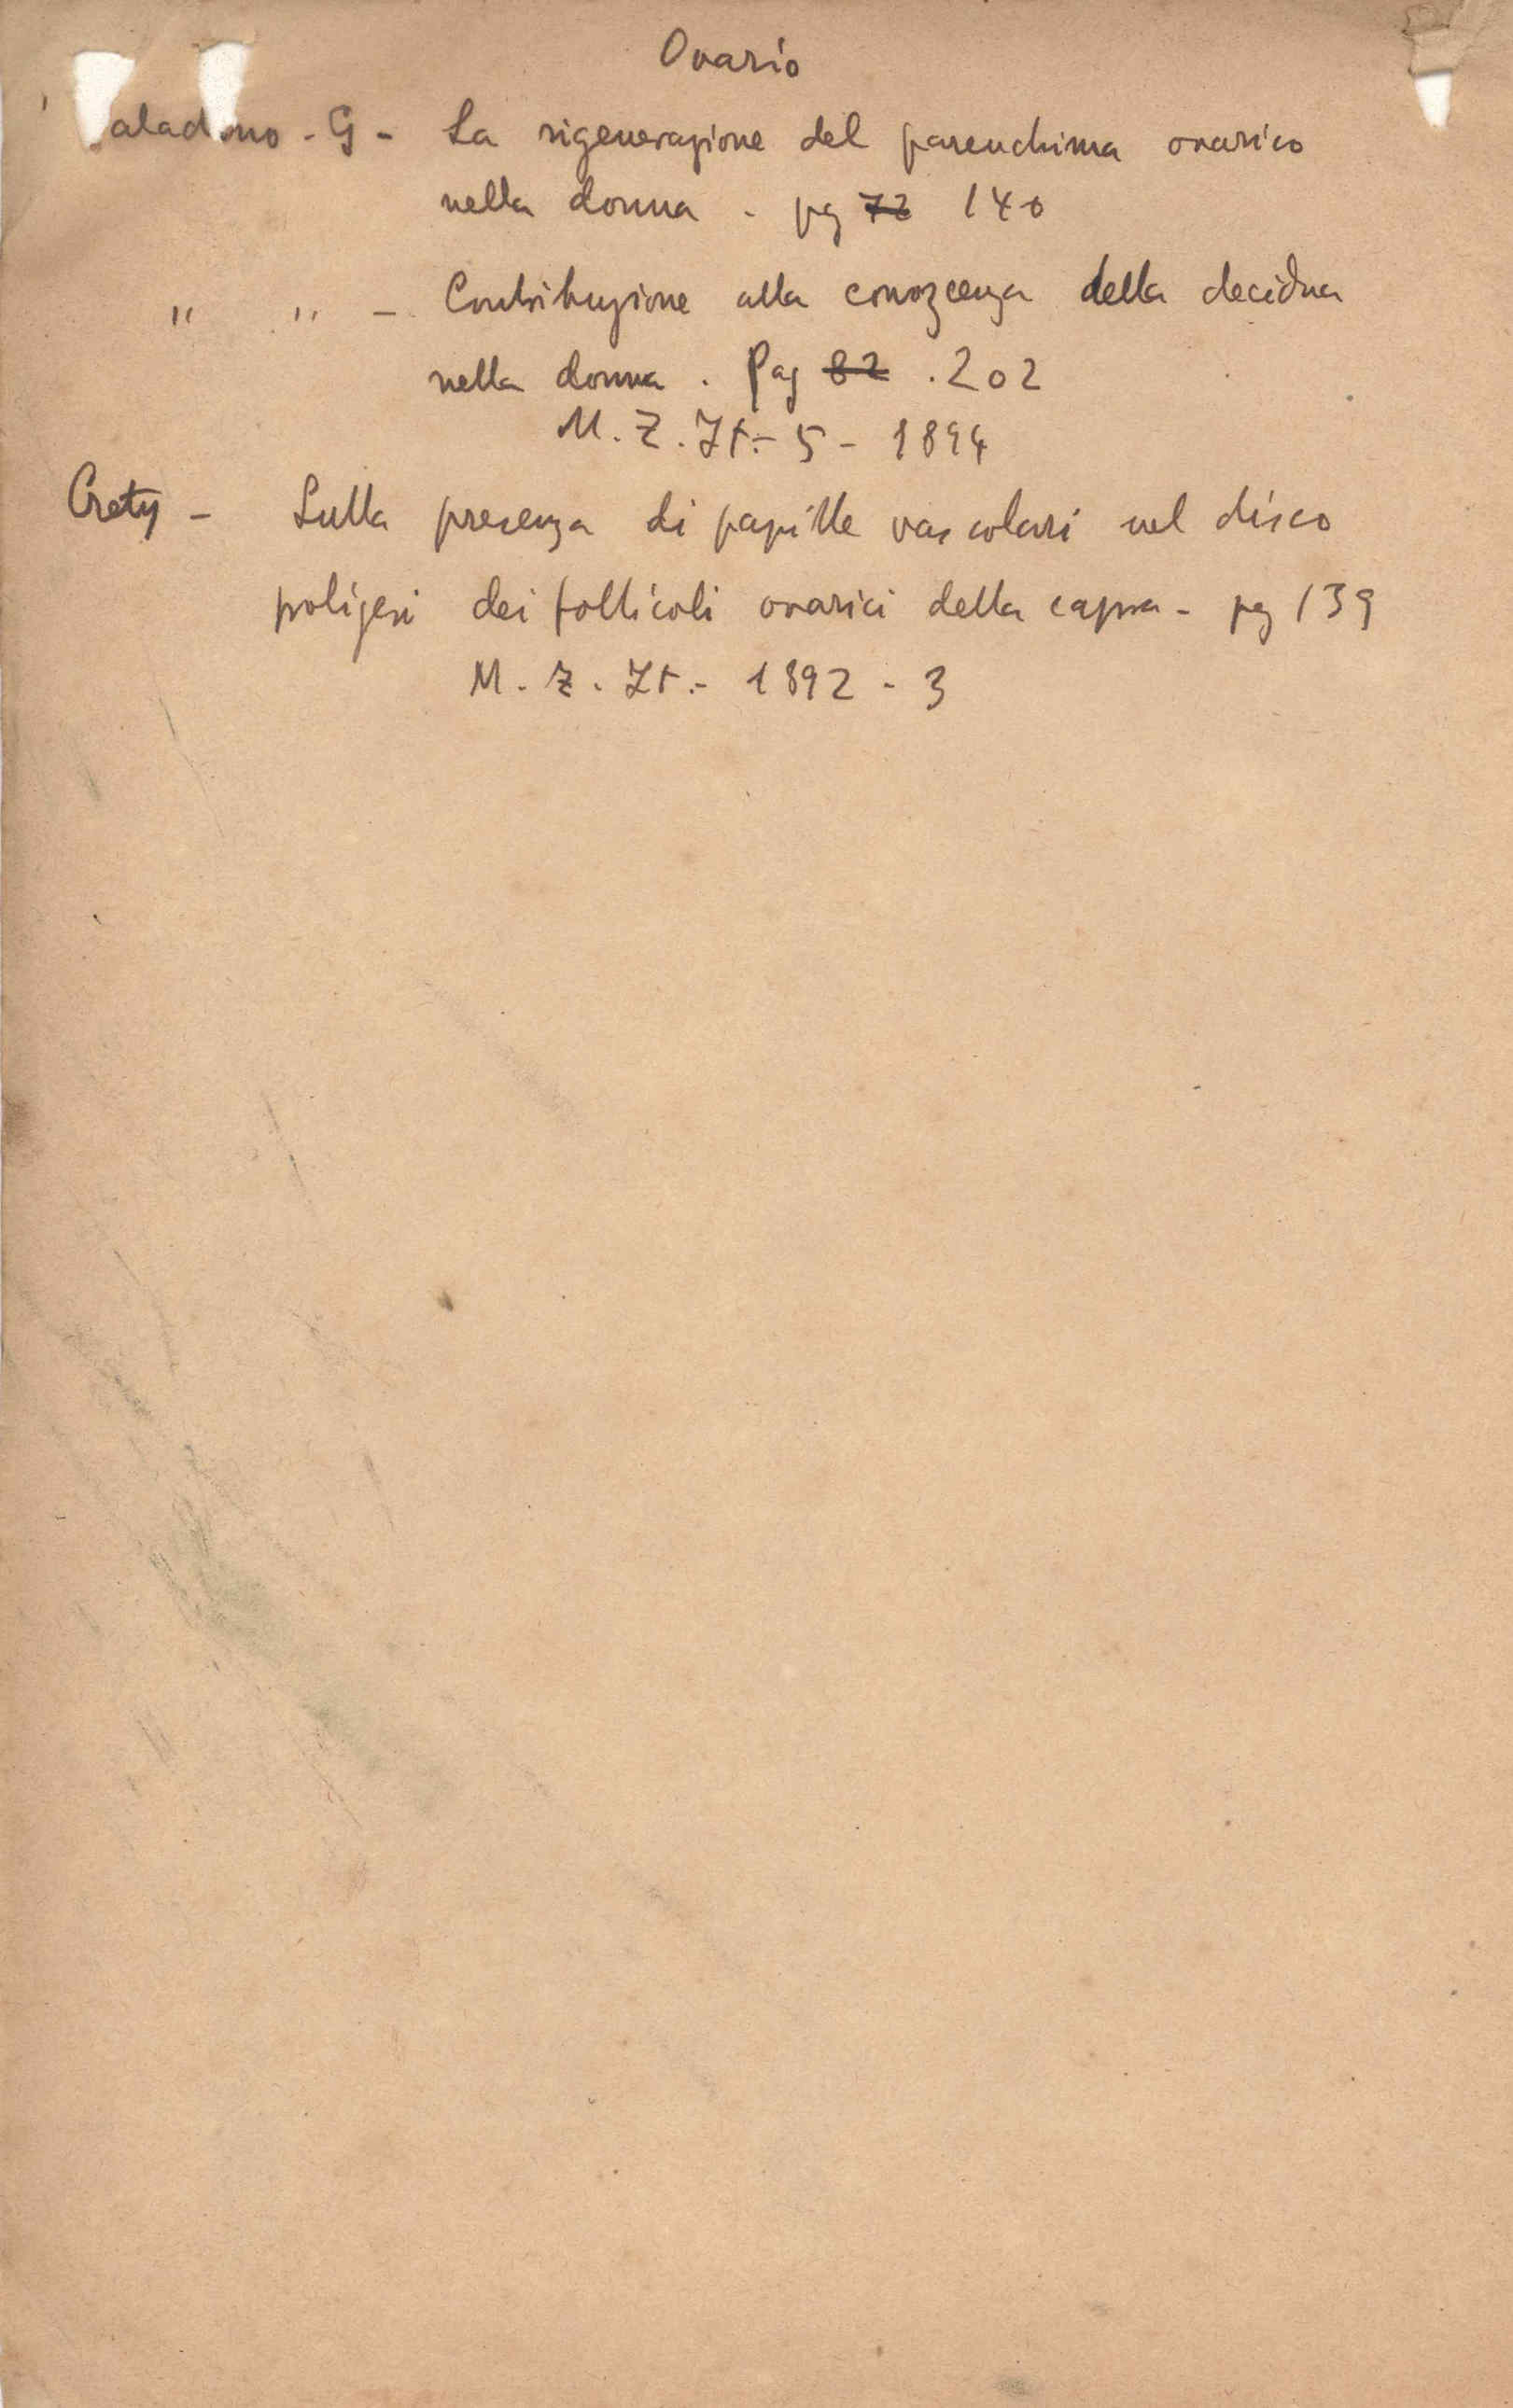 Ovario
aladino - G - La rigenerazione del parenchima ovarico
nella donna - pg 72 140
" " - Contribuzione alla conoscenza della decidua
nella donna . Pag 82 . 202
M. Z. It. - 5 - 1894
Crety - Sulla presenza di papille vascolari nel disco
poligeri dei follicoli ovarici della capra - pg 139
M. Z. It. - 1892 - 3